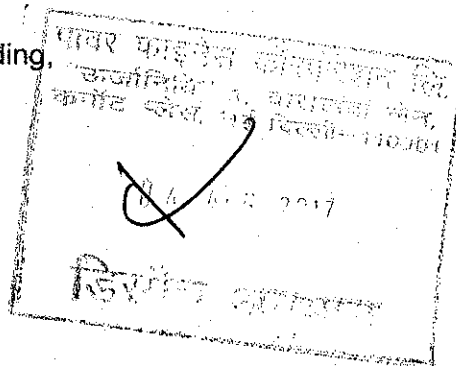 ding,
पावर फाइनेंस कॉरपोरेशन लि.
"ऊर्जानिधि" 1, बाराखम्बा लेन,
कनॉट प्लेस, नई दिल्ली-110001
2017
डिस्पैच अनुभाग